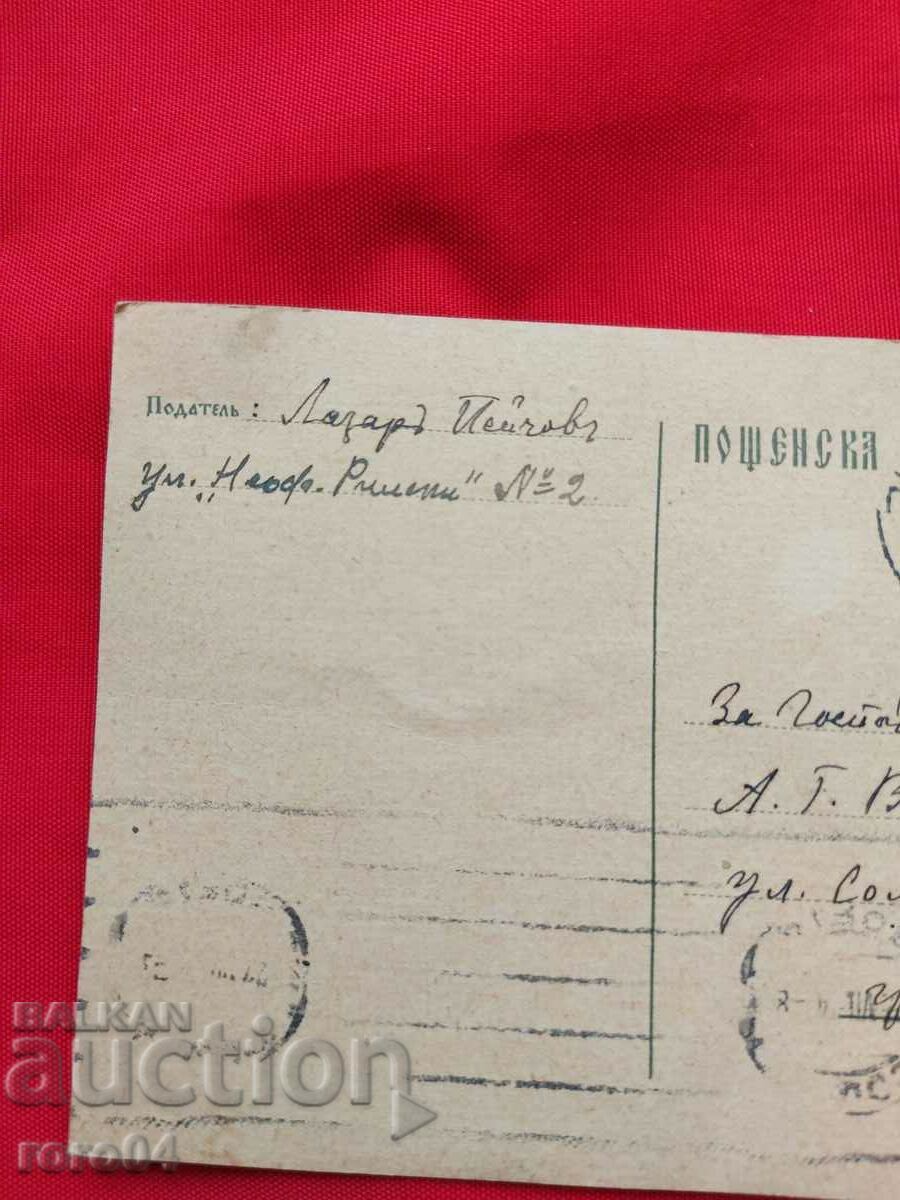 Податель: Лазаръ Пейчовъ
ул. „Неоф. Рилски" № 2
ПОЩЕНСКА
За Госпо
А. Г. В
ул. Сол
BALKAN
auction
roro04